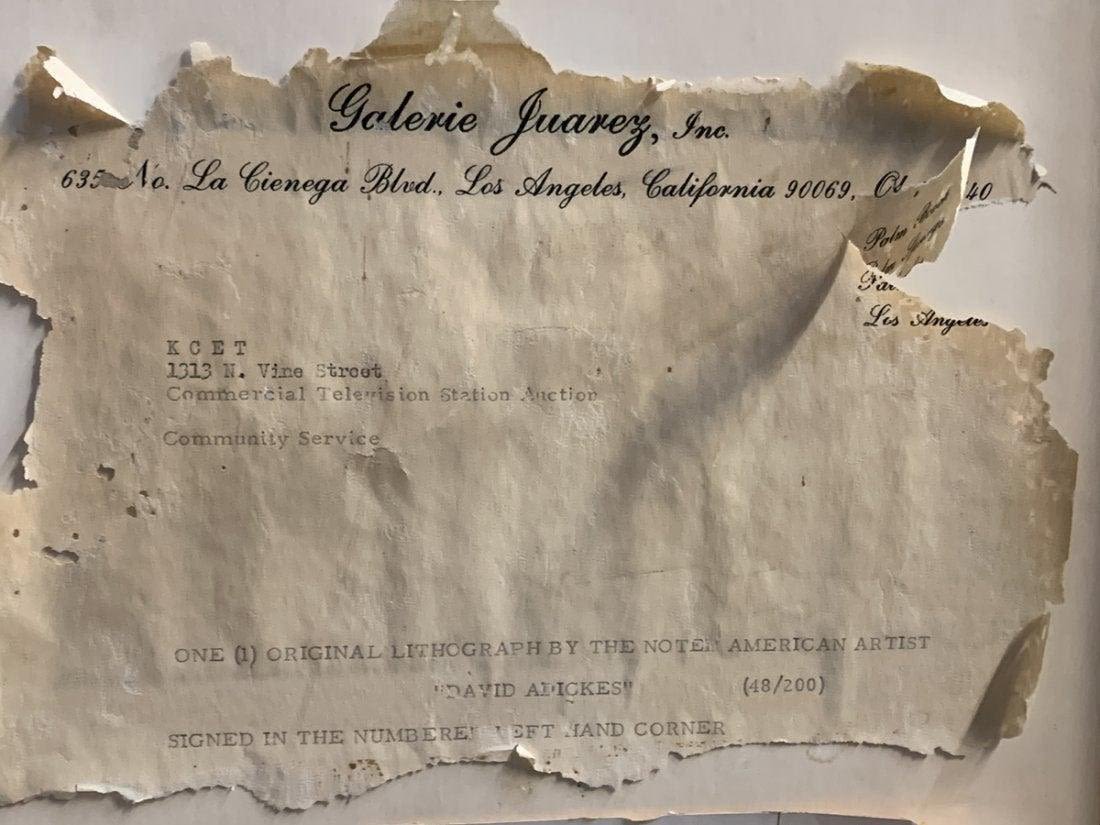 Galerie Juarez, Inc.
635 No. La Cienega Blvd., Los Angeles, California 90069, 40
Palm
Los Angeles
K C E T
1313 N. Vine Street
Commercial Television Station Auction
Community Service
ONE (1) ORIGINAL LITHOGRAPH BY THE NOTED AMERICAN ARTIST
"DAVID ADICKES" (48/200)
SIGNED IN THE NUMBERED LEFT HAND CORNER